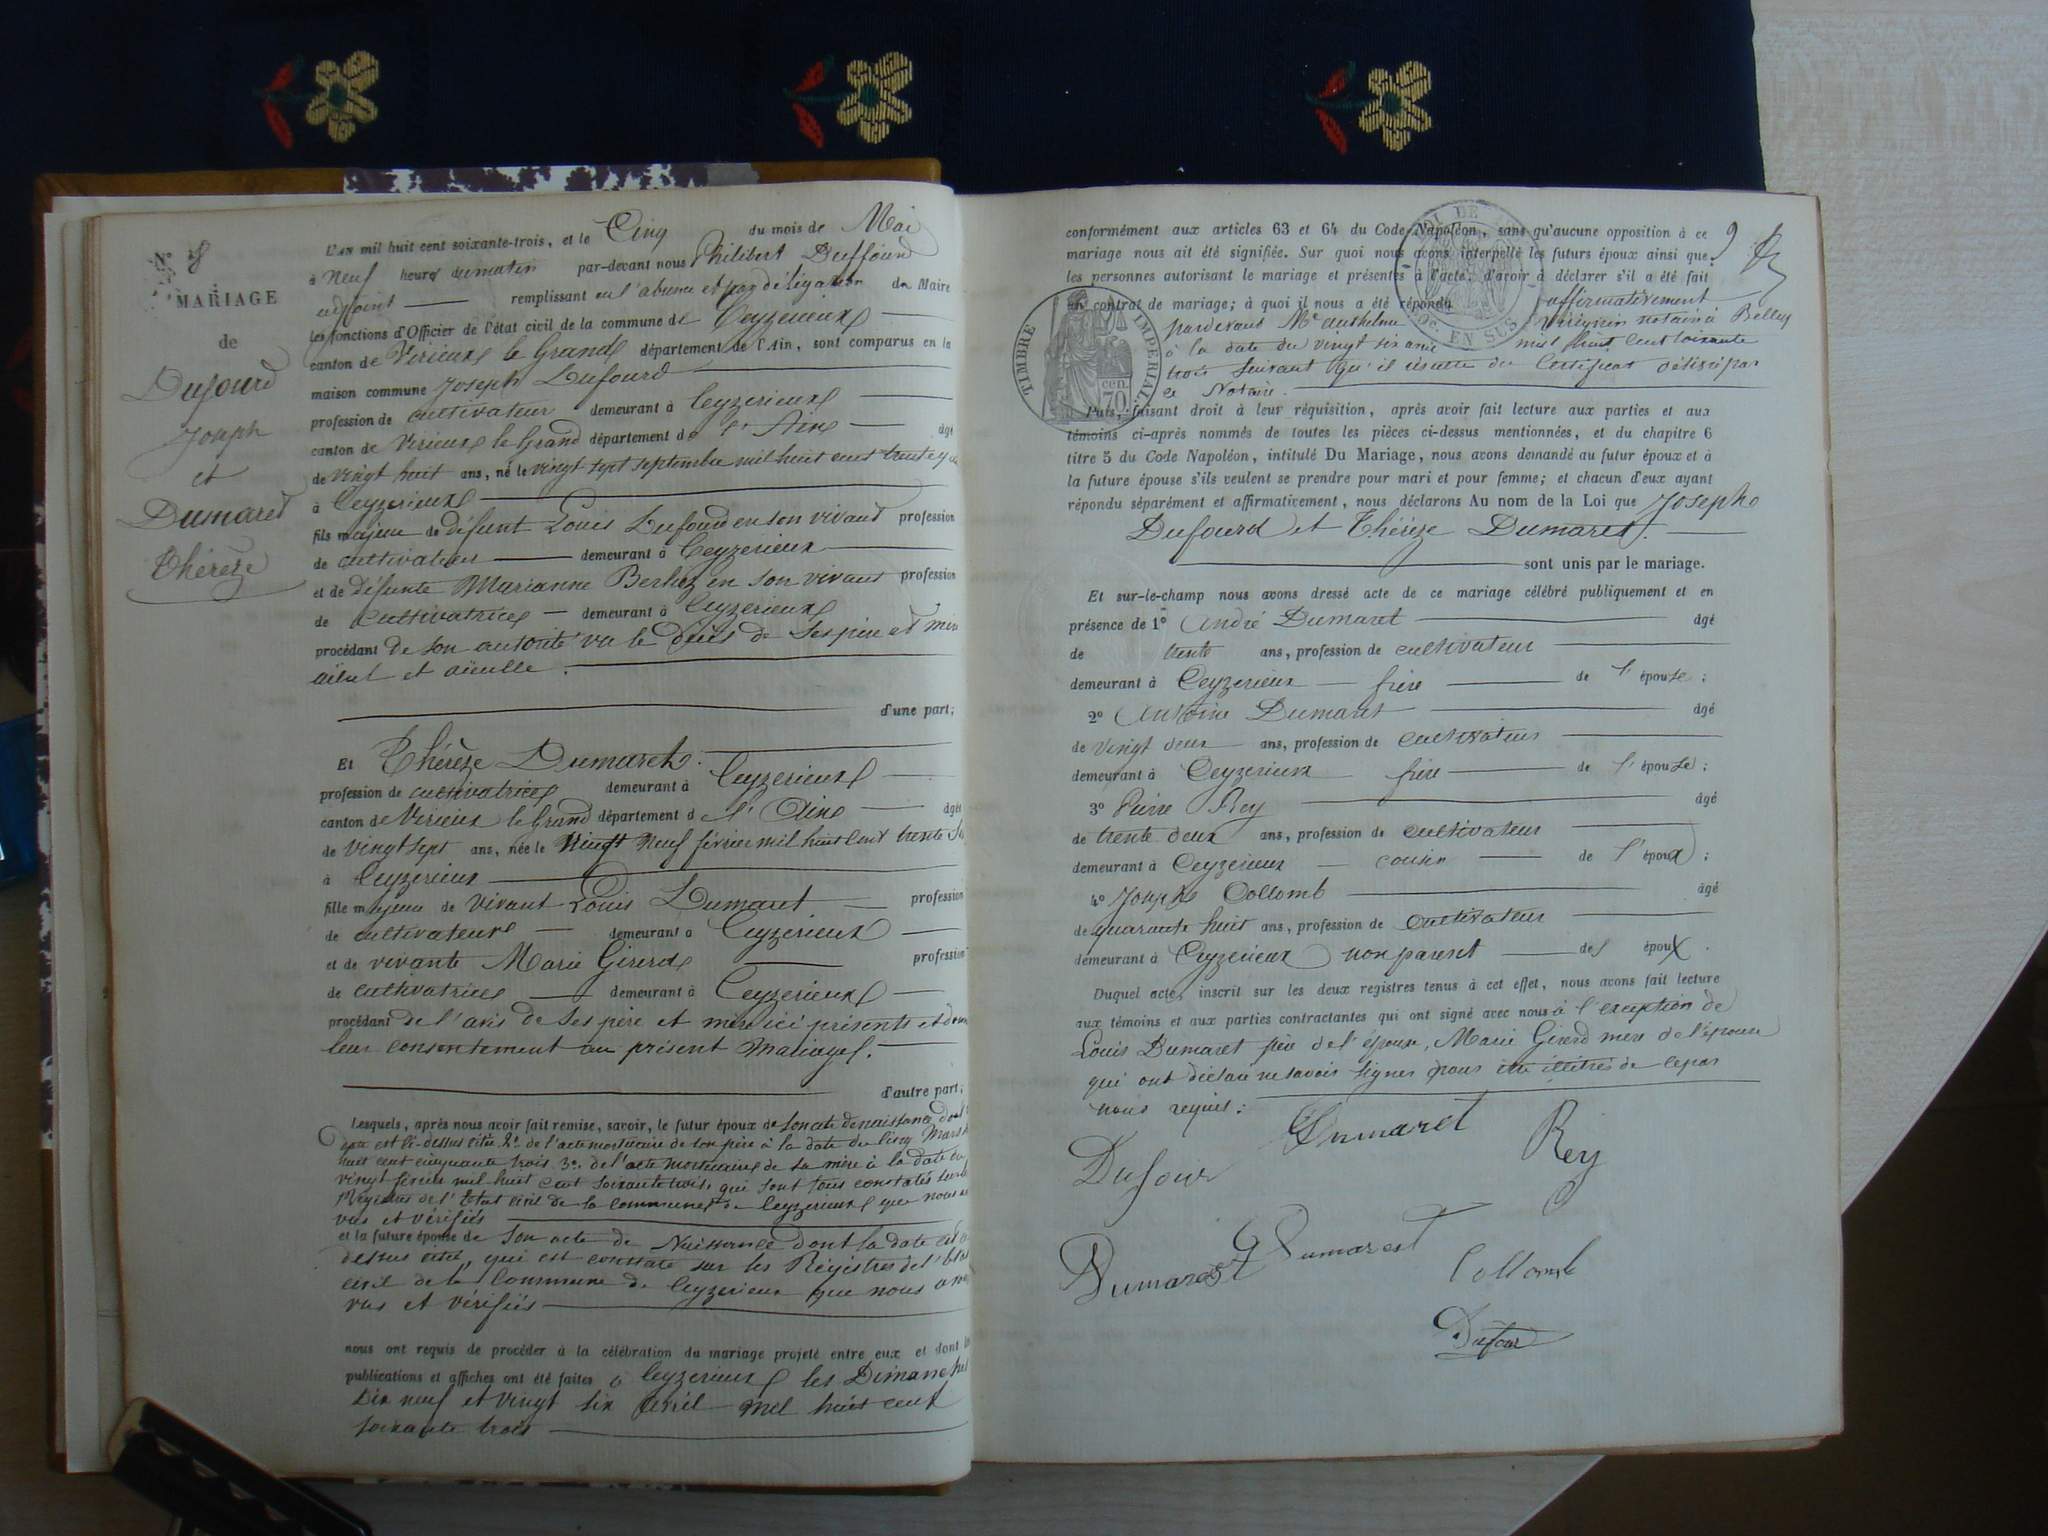 N° 8
MARIAGE
de
Dufourd
Joseph
et
Dumaret
Thérèze
L'an mil huit cent soixante-trois, et le Cinq du mois de Mai
à Neuf heures du matin par-devant nous Philibert Duffourd
adjoint remplissant en l'absence et par délégation du Maire
les fonctions d'Officier de l'état civil de la commune de Ceyzerieux
canton de Virieux le Grand département de l'Ain, sont comparus en la
maison commune Joseph Dufourd
profession de cultivateur demeurant à Ceyzerieux
canton de Virieux le Grand département de l'Ain âgé
de vingt huit ans, né le vingt sept septembre mil huit cent trente
à Ceyzerieux
fils majeur de défunt Louis Dufourd en son vivant profession
de cultivateur demeurant à Ceyzerieux
et de défunte Marianne Berlioz en son vivant profession
de cultivatrice demeurant à Ceyzerieux
procédant de son autorité vu le décès de ses père et mère
aïeul et aïeulle.
d'une part;
Et Thérèze Dumaret.
profession de cultivatrice demeurant à Ceyzerieux
canton de Virieux le Grand département de l'Ain âgée
de vingt sept ans, née le Vingt Neuf février mil huit cent trente six
à Ceyzerieux
fille majeure de vivant Louis Dumaret profession
de cultivateur demeurant à Ceyzerieux
et de vivante Marie Girerd profession
de cultivatrice demeurant à Ceyzerieux
procédant de l'avis de ses père et mère ici présents et donn
leur consentement au présent mariage.
d'autre part;
Lesquels, après nous avoir fait remise, savoir, le futur époux de son acte de naissance dont
date est ci-dessus citée 2° de l'acte mortuaire de son père à la date du Cinq Mars
huit cent cinquante trois 3° de l'acte mortuaire de sa mère à la date du
vingt février mil huit cent soixante trois, qui sont tous constatés sur les
Registres de l'Etat civil de la commune de Ceyzerieux que nous a
vus et vérifiés
et la future épouse de son acte de Naissance dont la date est
dessus citée, qui est constaté sur les Registres de l'Etat
civil de la Commune de Ceyzerieux que nous avons
vus et vérifiés
nous ont requis de procéder à la célébration du mariage projeté entre eux et dont les
publications et affiches ont été faites à Ceyzerieux les Dimanches
Dix neuf et vingt six avril mil huit cent
soixante trois
9
conformément aux articles 63 et 64 du Code Napoléon, sans qu'aucune opposition à ce
mariage nous ait été signifiée. Sur quoi nous avons interpellé les futurs époux ainsi que
les personnes autorisant le mariage et présentes à l'acte, d'avoir à déclarer s'il a été fait
un contrat de mariage; à quoi il nous a été répondu affirmativement
pardevant Me Anthelme notaire à Belley
à la date du vingt six avril mil huit cent soixante
trois suivant qu'il résulte du Certificat délivré par
ce Notaire.
TIMBRE IMPERIAL
70 cen.
EN SUS
Puis, faisant droit à leur réquisition, après avoir fait lecture aux parties et aux
témoins ci-après nommés de toutes les pièces ci-dessus mentionnées, et du chapitre 6
titre 5 du Code Napoléon, intitulé Du Mariage, nous avons demandé au futur époux et à
la future épouse s'ils veulent se prendre pour mari et pour femme; et chacun d'eux ayant
répondu séparément et affirmativement, nous déclarons Au nom de la Loi que Joseph
Dufourd et Thérèze Dumaret.
sont unis par le mariage.
Et sur-le-champ nous avons dressé acte de ce mariage célébré publiquement et en
présence de 1° André Dumaret âgé
de trente ans, profession de cultivateur
demeurant à Ceyzerieux frère de l'épouse;
2° Antoine Dumaret âgé
de vingt deux ans, profession de cultivateur
demeurant à Ceyzerieux frère de l'épouse;
3° Pierre Rey âgé
de trente deux ans, profession de cultivateur
demeurant à Ceyzerieux cousin de l'époux;
4° Joseph Collomb âgé
de quarante huit ans, profession de cultivateur
demeurant à Ceyzerieux non parent des époux.
Duquel acte, inscrit sur les deux registres tenus à cet effet, nous avons fait lecture
aux témoins et aux parties contractantes qui ont signé avec nous à l'exception de
Louis Dumaret père de l'épouse, Marie Girerd mère de l'épouse
qui ont déclaré ne savoir signer pour être illitrés de ce par
nous requis:
Dufour Dumaret Rey
Dumarest Dumarest Collomb
Dufour